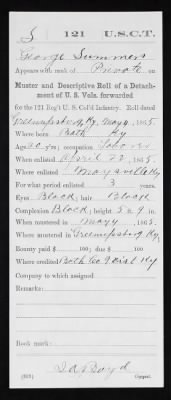 S 121 U.S.C.T.
George Summers
Appears with rank of Private on
Muster and Descriptive Roll of a Detach-
ment of U. S. Vols. forwarded
for the 121 Reg't U. S. Col'd Infantry. Roll dated
Greenupsburg, Ky, May 9, 1865.
Where born Bath Ky
Age 20 y'rs; occupation Laborer
When enlisted April 22, 1865.
Where enlisted Maysville Ky
For what period enlisted 3 years.
Eyes Black; hair Black
Complexion Black; height 5 ft. 9 in.
When mustered in May 9, 1865.
Where mustered in Greenupsburg Ky.
Bounty paid $ 100; due $ 100
Where credited Bath Co 9 Dist Ky
Company to which assigned
Remarks:
Book mark:
Boyd
Copyist.